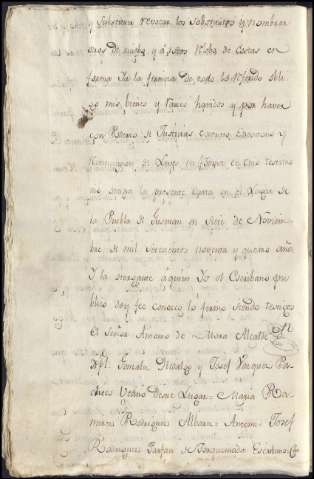 y substituir revocar los substitutos y nombrar
otros de nuebo y á estos releba de costas en
forma. Y a la firmeza de todo lo referido obli
go mis bienes y rentas havidos y por haver
con Poderio de Justicias
renunciacion de Leyes en forma en cuio testimo
nio otorgo la presente Carta en el Lugar de
la Puebla de Guzman en siete de Noviem
bre de mil setecientos noventa y quatro años
Y la otorgante á quien Yo el Escribano pu
blico doy fee conozco lo firmo siendo testigos
El Señor Antonio de Mora Alcalde
Dn. Gonzalo y Josef Vazquez
Vecinos deste Lugar = Maria
Rodriguez = Antemi = Josef
Rodriguez Farfan de Escribano